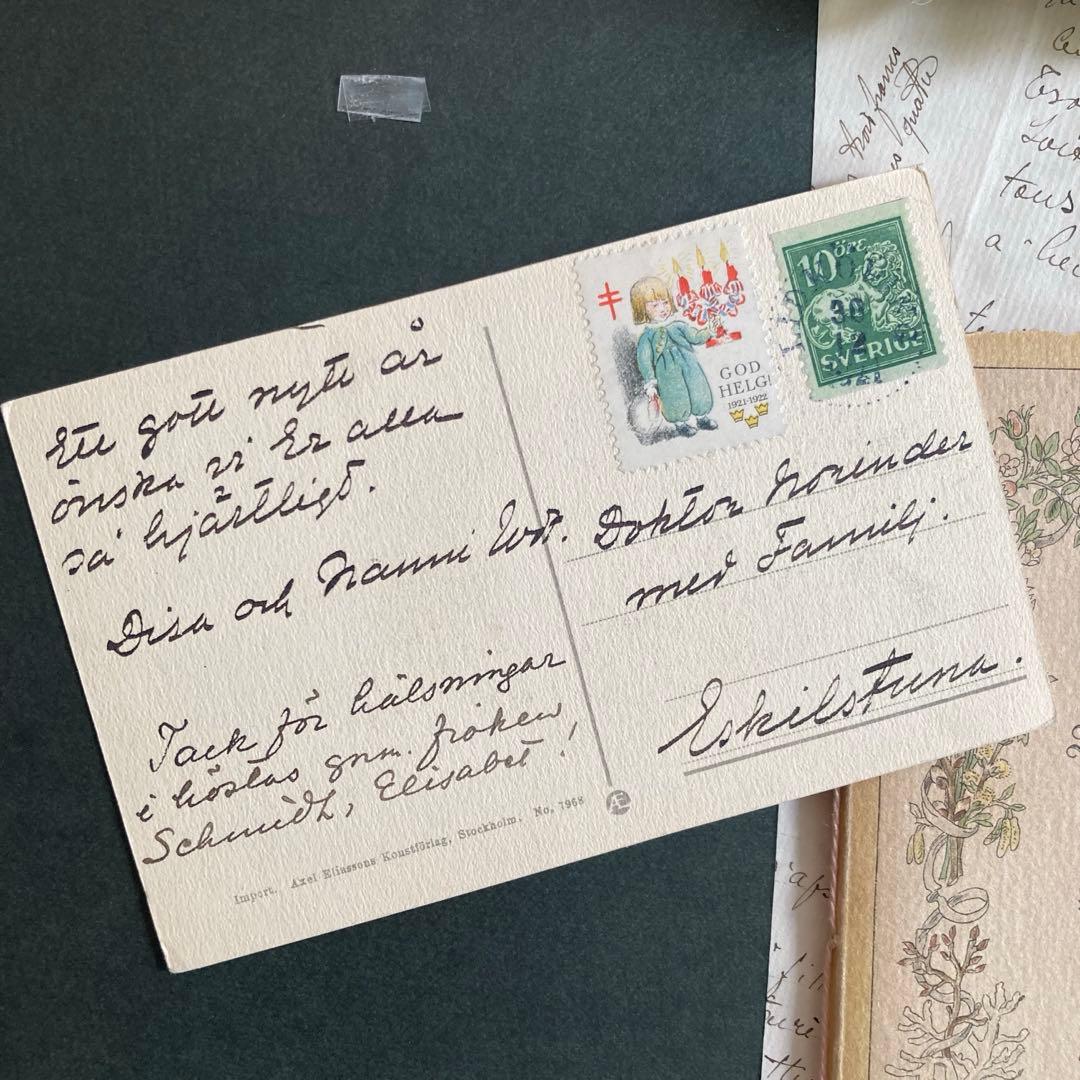 Ett gott nytt år
önska vi Er alla
så hjärtligt.
Disa och Nanni
Tack för hälsningar
i höstas gnm. fröken
Schmidt, Elisabet!
Import. Axel Eliassons Konstförlag, Stockholm. No. 7968
Æ
GOD
HELG!
1921-1922
10 öre
SVERIGE
30
12
21
Doktor Norinder
med Familj.
Eskilstuna.
tous